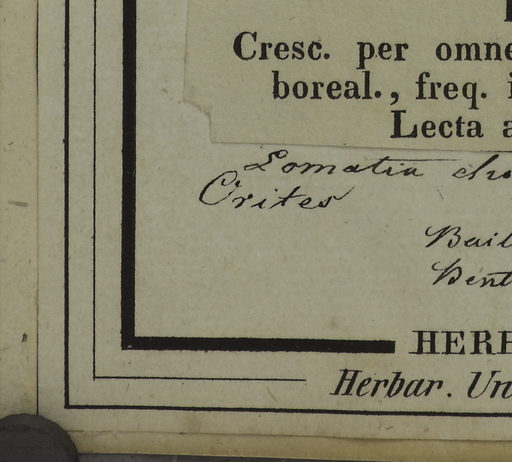 Cresc. per omne
boreal., freq. i
Lecta a
Lomatia
Orites
Bail
Bent
HERB
Herbar. Un